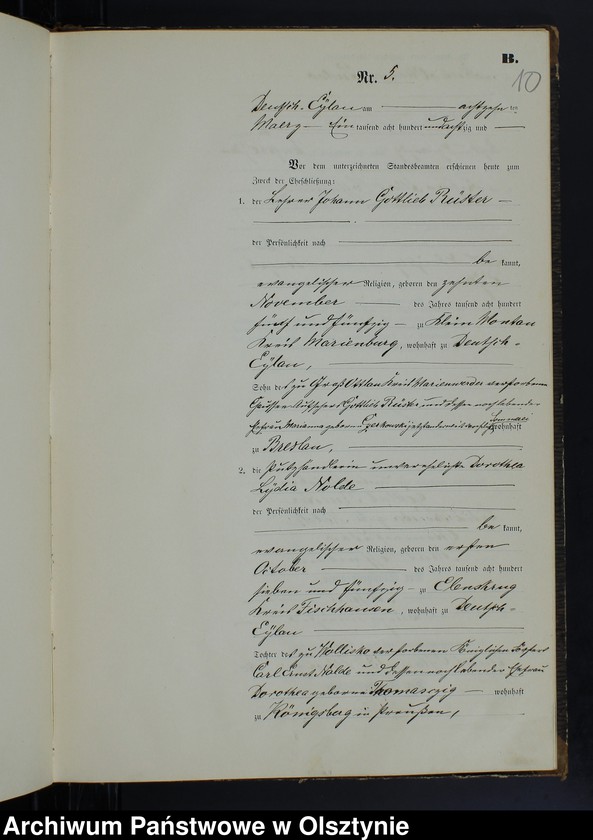 B.
10
Nr. 5.
Deutsch-Eylau am achtzehnten
Maerz Ein tausend acht hundert undachtzig und
Vor dem unterzeichneten Standesbeamten erschienen heute zum
Zweck der Eheschließung:
1. der Lehrer Johann Gottlieb Rüster
der Persönlichkeit nach
be kannt,
evangelischer Religion, geboren den zehnten
November des Jahres tausend acht hundert
fünf und fünfzig zu Klein Montau
Kreis Marienburg, wohnhaft zu Deutsch-
Eylau,
Sohn des zu Groß Ottlau Kreis Marienwerder verstorbenen
Aufsehers Gottlieb Rüster und dessen nachlebender
Ehefrau Marianna geborene wohnhaft
zu Breslau,
2. die Putzhandlerin unverehelichte Dorothea
Lydia Nolde
der Persönlichkeit nach
be kannt,
evangelischer Religion, geboren den ersten
October des Jahres tausend acht hundert
sieben und fünfzig zu Elenskrug
Kreis Fischhausen, wohnhaft zu Deutsch-
Eylau
Tochter des zu verstorbenen Königlichen Försters
Carl Ernst Nolde und dessen nachlebender Ehefrau
Dorothea geborene Thomaszig wohnhaft
zu Königsberg in Preußen,
Archiwum Państwowe w Olsztynie